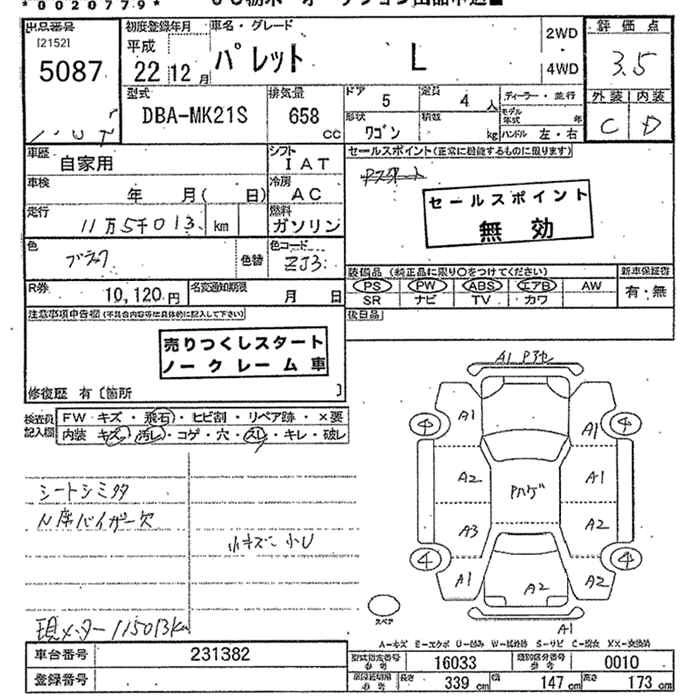 *0020779*
出品番号
[21521]
5087
初度登録年月
平成
22 12月
車名・グレード
パレット L
2WD
・
4WD
評価点
3.5
外装 内装
C D
型式
DBA-MK21S
排気量
658
cc
ドア
5
定員
4人
ディーラー・並行
形状
ワゴン
積数
kg
モデル年式 年
ハンドル 左・右
車歴
自家用
シフト
IAT
車検
年 月( 日)
冷房
AC
走行
11万5千013 km
燃料
ガソリン
色
ブラック
色替
色コード
ZJ3
セールスポイント(正常に機能するものに限ります)
セールスポイント
無効
装備品(純正品に限り○をつけてください)
PS PW ABS エアB AW
SR ナビ TV カワ
新車保証書
有・無
R券
10,120円
名変通知期限
月 日
後日品
注意事項申告欄(不具合内容等は具体的に記入して下さい)
売りつくしスタート
ノークレーム車
修復歴 有[箇所 ]
検査員
記入欄
FW キズ・飛石・ヒビ割・リペア跡・×要
内装 キズ・汚レ・コゲ・穴・スレ・キレ・破レ
シートシミタタ
N席バイザー欠
小キズ 小U
現メーター115013km
A1
A1
A1
4
4
A2
A1
Pハゲ
A3
A2
4
4
A1
A2
A2
スペア
A1
A-キズ E-エクボ U-凹み W-補修跡 S-サビ C-腐食 XX-交換済
車台番号
231382
登録番号
型式指定番号
参考
16033
類別区分番号
参考
0010
長さ
339 cm
巾
147 cm
高さ
173 cm